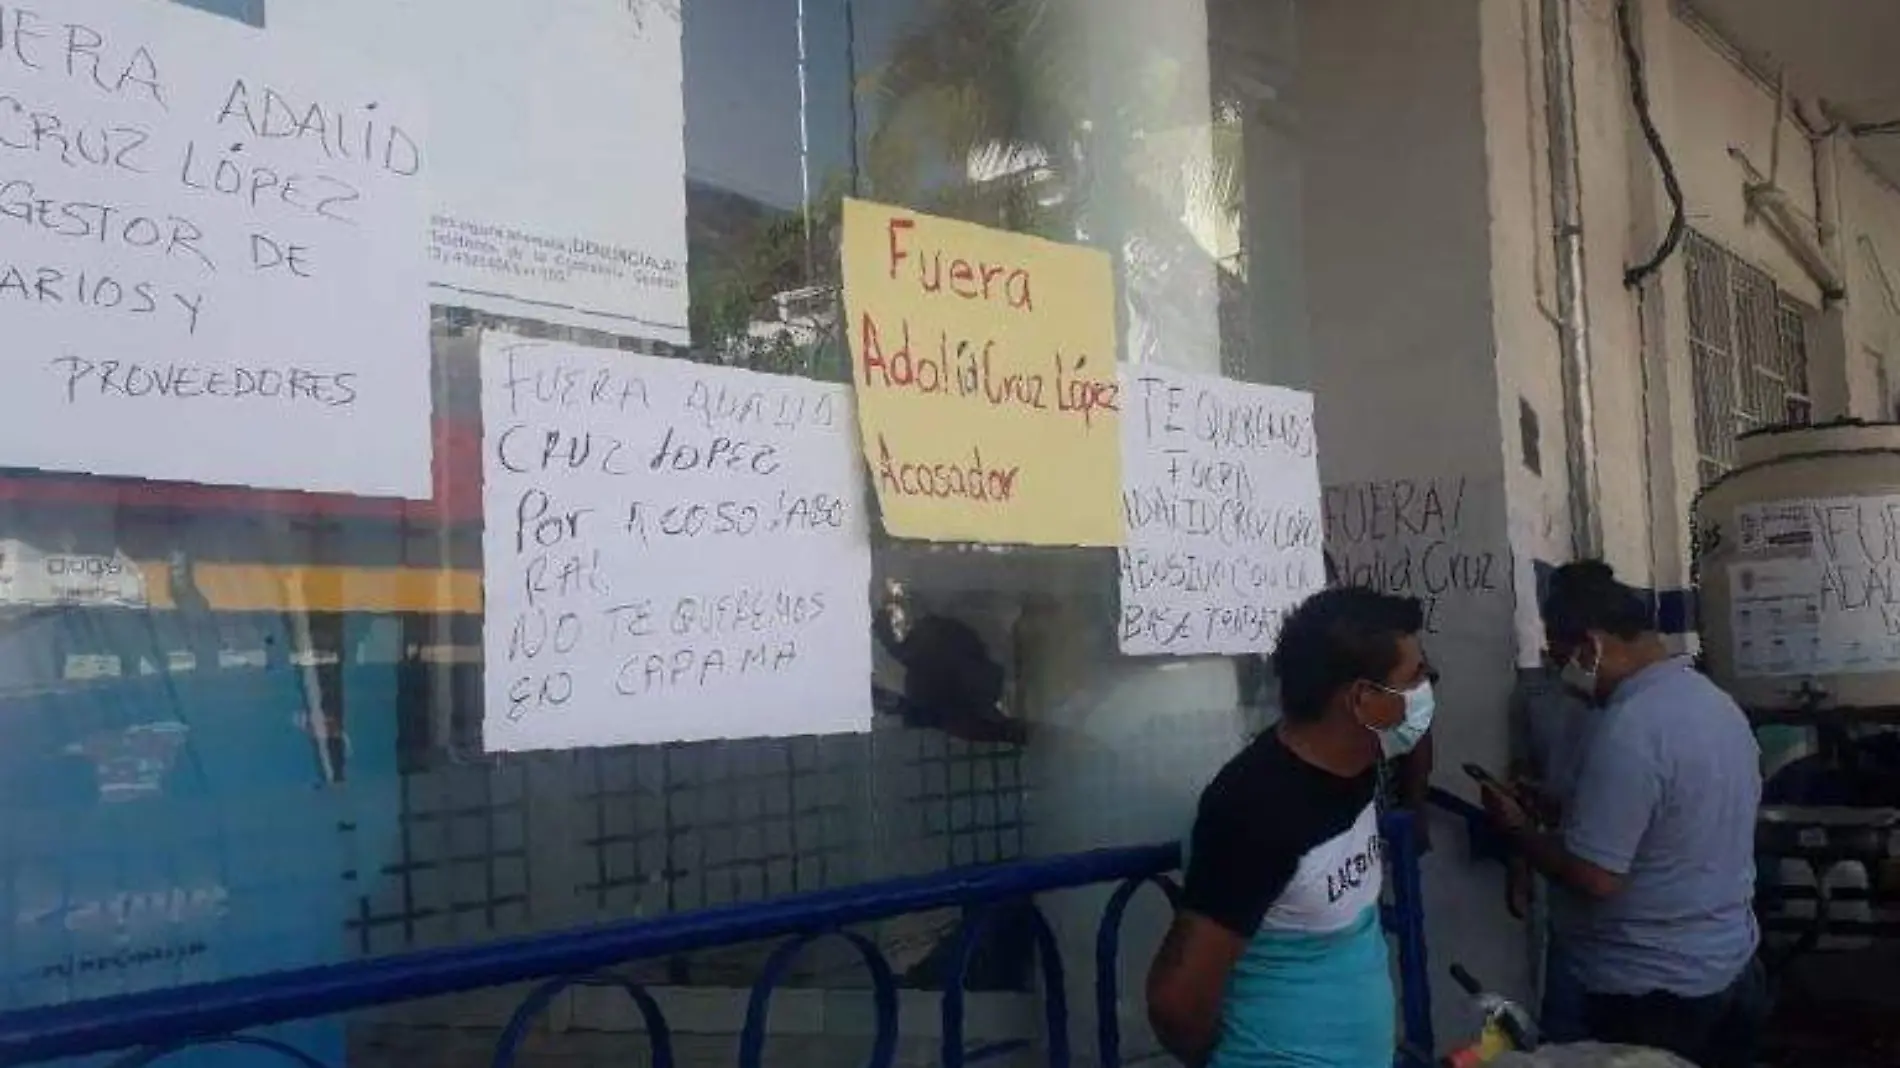 ERA ADALID
CRUZ LÓPEZ
GESTOR DE
ARIOS Y
PROVEEDORES
¡DENÚNCIALA!
FUERA ADALID
CRUZ LOPEZ
Por ACOSO LABO
RAL
NO TE QUEREMOS
EN CAPAMA
Fuera
Adalid Cruz López
Acosador
TE QUEREMOS
FUERA
ADALID CRUZ LOPE
ABUSIVO CON LA
BASE TRABA
FUERA!
Adalid Cruz
¡FUE
ADAL